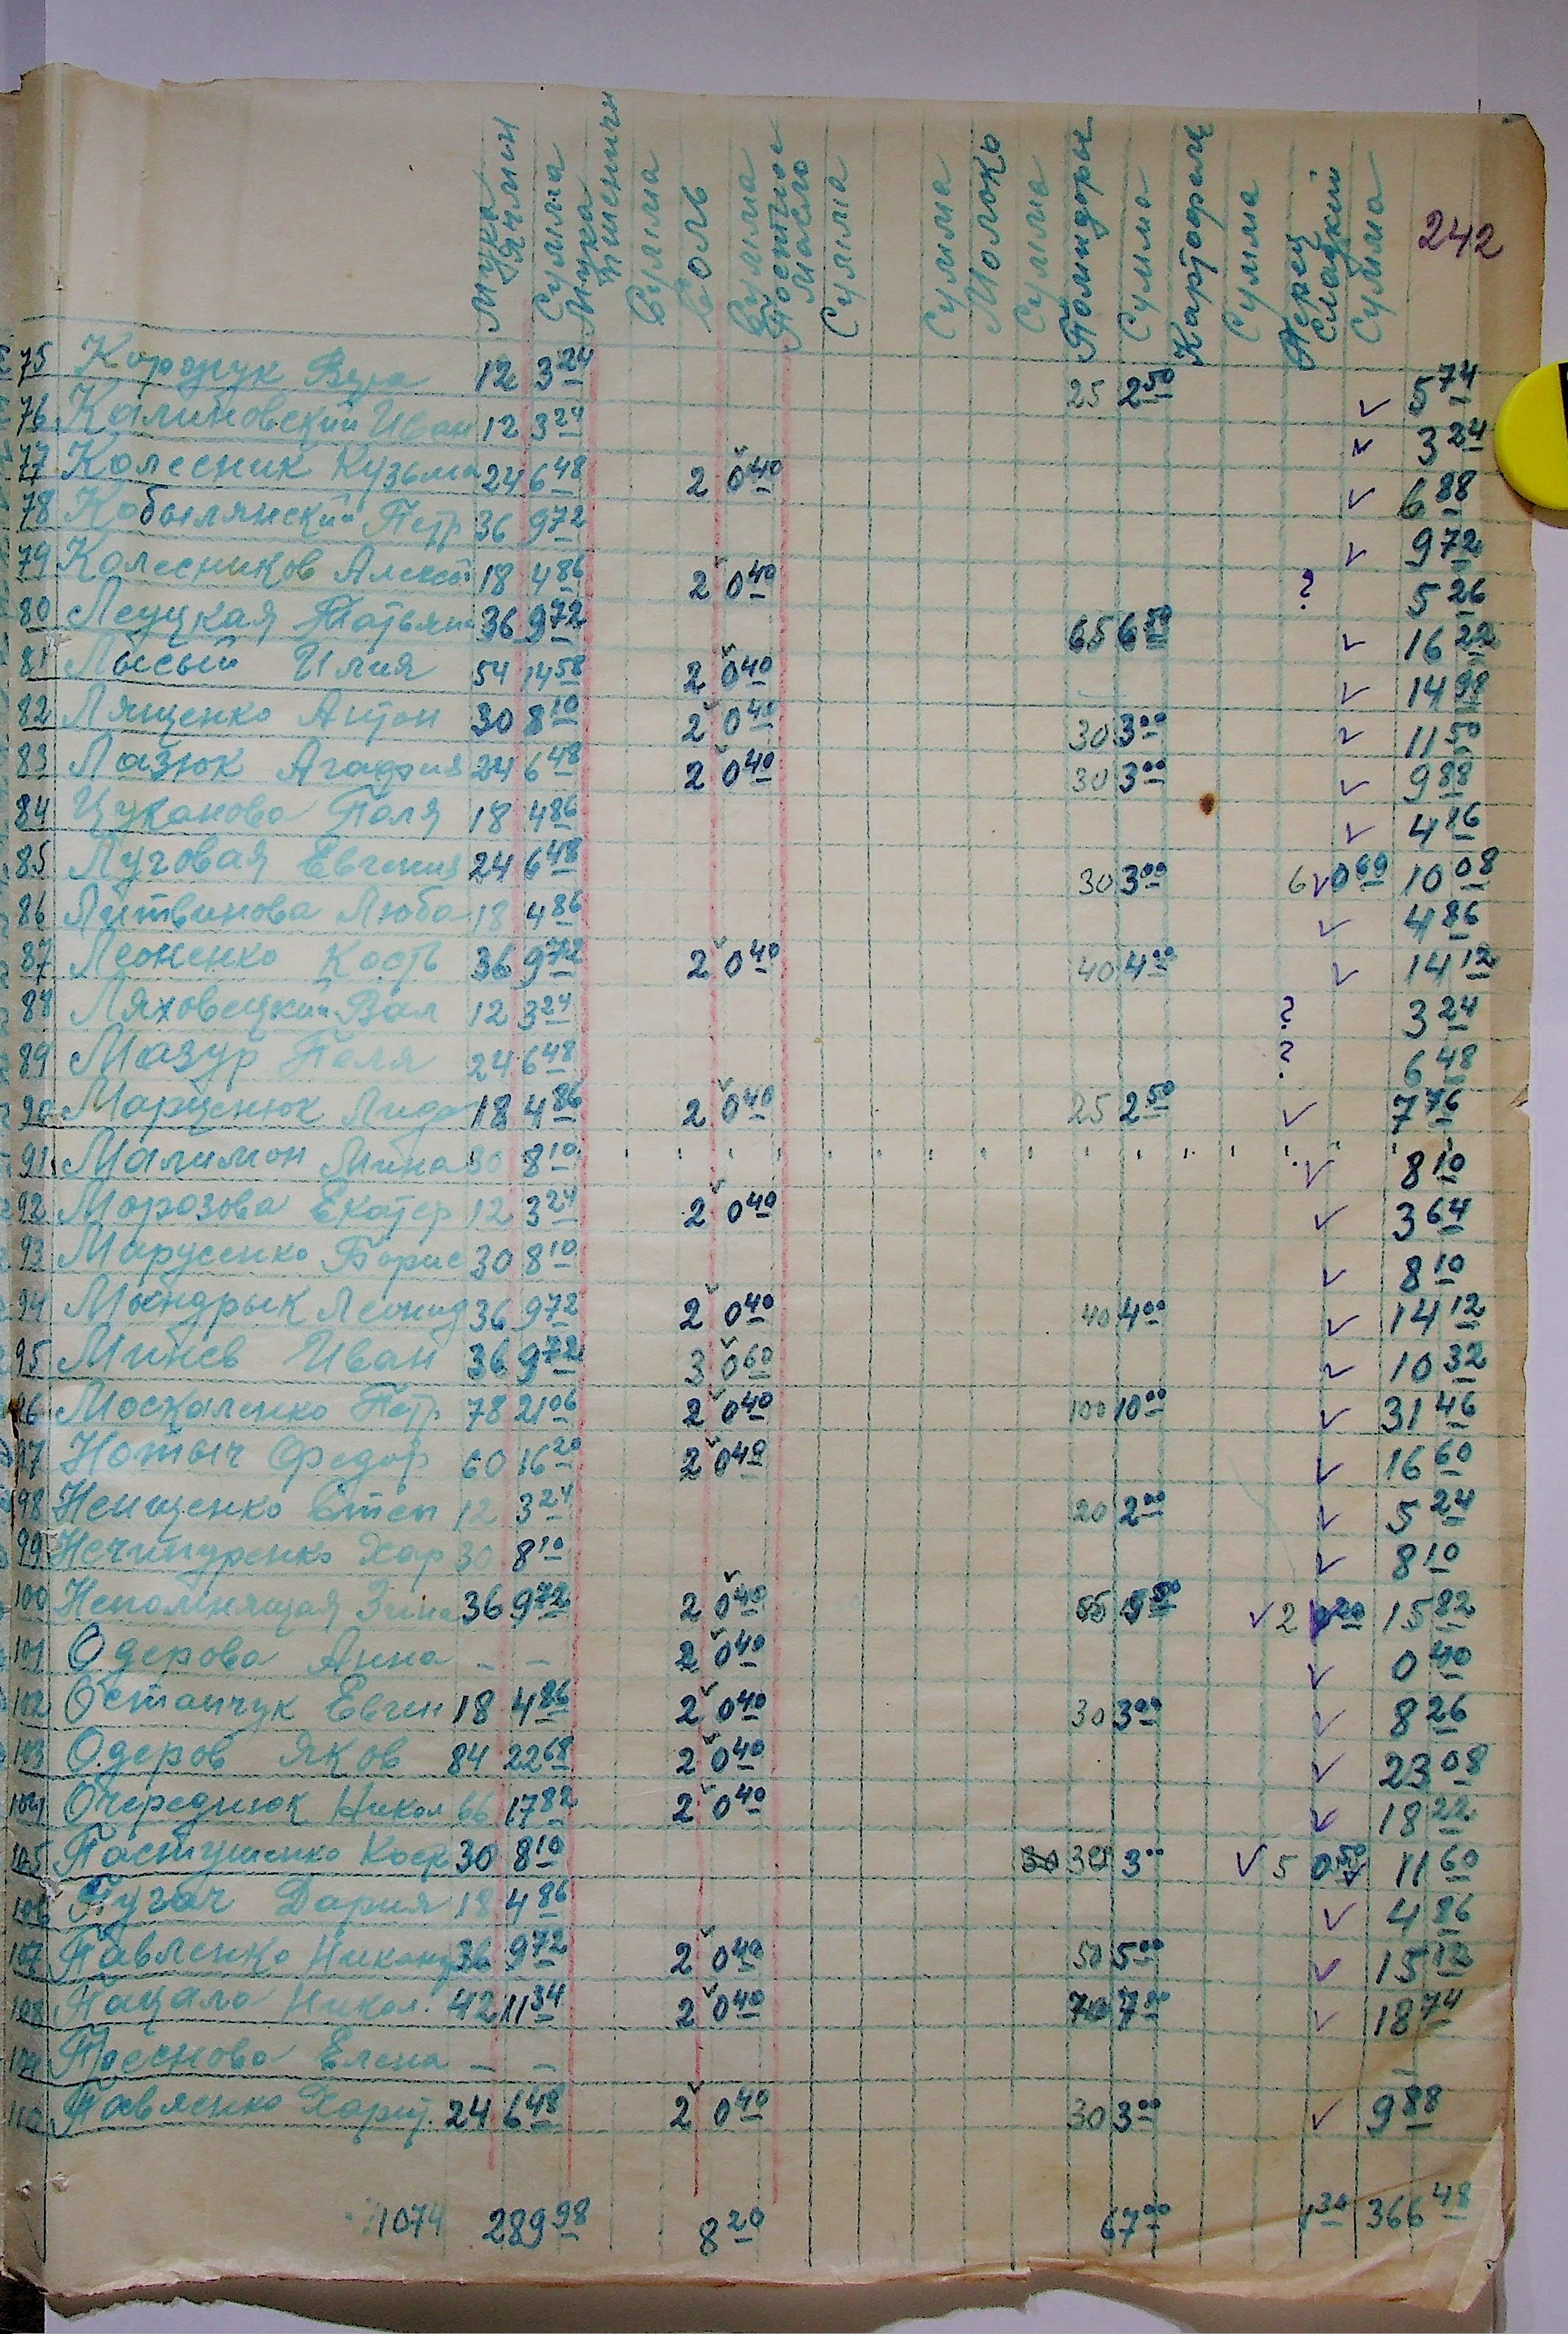 Мука Ячмін Сумма Мука Пшеничн Сумма Соль Сумма Постное Масло Сумма Сумма Молоко Сумма Помидоры Сумма Картофель Сумма Перец Сладкий Сумма 242
75 Вера 12 3 24 25 2 50 ✓ 5 74
76 Калиновский Иван 12 3 24 ✓ 3 24
77 Колесник Кузьма 24 6 48 2 ✓ 0 40 ✓ 6 88
78 Кобылянский Петр 36 9 72 ✓ 9 72
79 Колесников Алексе 18 4 86 2 0 40 ? 5 26
80 Леуцкая Татьяна 36 9 72 65 6 50 ✓ 16 22
81 Лысый Илия 54 14 58 2 ✓ 0 40 ✓ 14 98
82 Лященко Антон 30 8 10 2 ✓ 0 40 30 3 00 ✓ 11 50
83 Лазюк Агафия 24 6 48 2 ✓ 0 40 30 3 00 ✓ 9 88
84 Цуканова Поля 18 4 86 ✓ 4 86
85 Луговая Евгения 24 6 48 30 3 00 6 ✓ 0 60 10 08
86 Литвинова Люба 18 4 86 ✓ 4 86
87 Леоненко Кость 36 9 72 2 ✓ 0 40 40 4 00 ✓ 14 12
88 Ляховецкий Вал 12 3 24 ? 3 24
89 Мазур Поля 24 6 48 ? 6 48
90 Марценюк Лида 18 4 86 2 ✓ 0 40 25 2 50 ✓ 7 76
91 Малимон Мина 30 8 10 ✓ 8 10
92 Морозова Екатер 12 3 24 2 ✓ 0 40 ✓ 3 64
93 Марусенко Борис 30 8 10 ✓ 8 10
94 Мандрык Леонид 36 9 72 2 ✓ 0 40 40 4 00 ✓ 14 12
95 Минев Иван 36 9 72 3 ✓ 0 60 ✓ 10 32
96 Москаленко Петр 78 21 06 2 ✓ 0 40 100 10 00 ✓ 31 46
97 Нотыч Федор 60 16 20 2 ✓ 0 40 ✓ 16 60
98 Неищенко Степ 12 3 24 20 2 00 ✓ 5 24
99 Нечипуренко Хар 30 8 10 ✓ 8 10
100 Непомнящая Зина 36 9 72 2 ✓ 0 40 ✓ 2 0 20 15 82
101 Одерова Анна – – 2 ✓ 0 40 ✓ 0 40
102 Остапчук Евген 18 4 86 2 ✓ 0 40 30 3 00 ✓ 8 26
103 Одеров Яков 84 22 68 2 ✓ 0 40 ✓ 23 08
104 Очереднюк Никол 66 17 82 2 ✓ 0 40 ✓ 18 22
105 Пастушенко 30 8 10 30 3 00 ✓ 5 0 50 ✓ 11 60
106 Пугач Дария 18 4 86 ✓ 4 86
107 Павленко Никанд 36 9 72 2 ✓ 0 40 50 5 00 ✓ 15 12
108 Пацало Никол. 42 11 34 2 ✓ 0 40 70 7 00 ✓ 18 74
109 Елена – – –
110 Павленко Харит. 24 6 48 2 ✓ 0 40 30 3 00 ✓ 9 88
1074 289 98 8 20 67 00 1 30 366 48